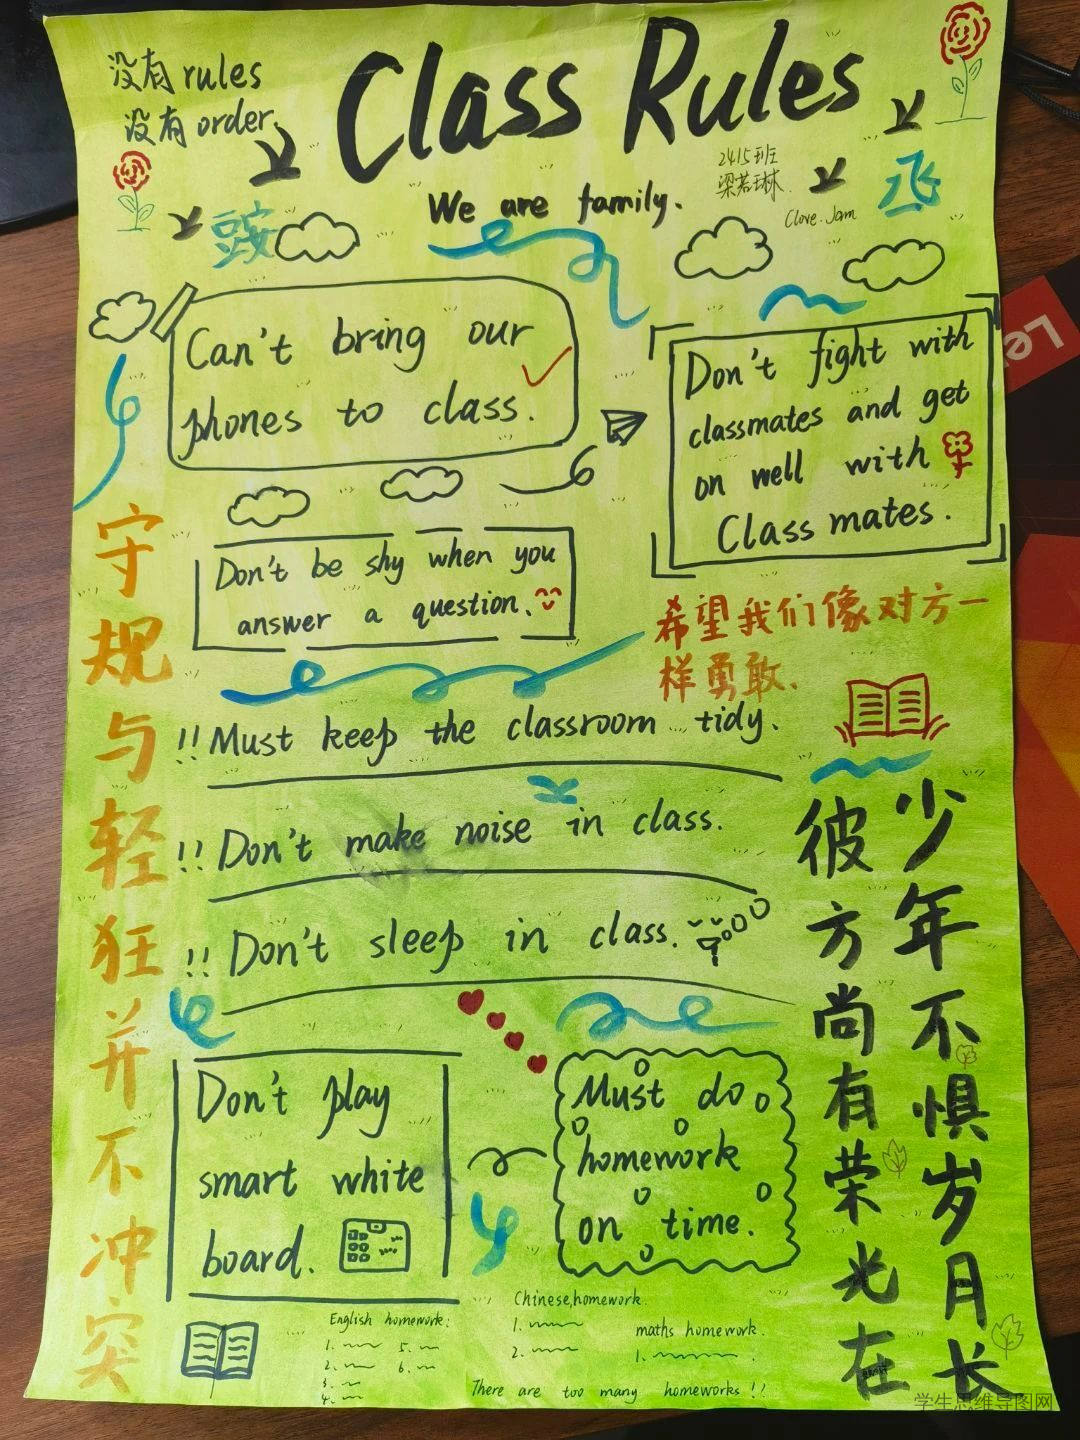 没有 rules
没有 order.
Class Rules
2415班
梁若琳.
We are family.
Clove. Jam
Can't bring our
phones to class.
Don't fight with
classmates and get
on well with
Class mates.
Don't be shy when you
answer a question.
希望我们像对方一
样勇敢.
!! Must keep the classroom tidy.
!! Don't make noise in class.
!! Don't sleep in class.
Don't play
smart white
board.
Must do
homework
on time.
守规与轻狂并不冲突
少年不惧岁月长
彼方尚有荣光在
English homework:
1.
2.
3.
4.
5.
6.
Chinese, homework.
1.
2.
maths homework.
1.
There are too many homeworks !!
学生思维导图网